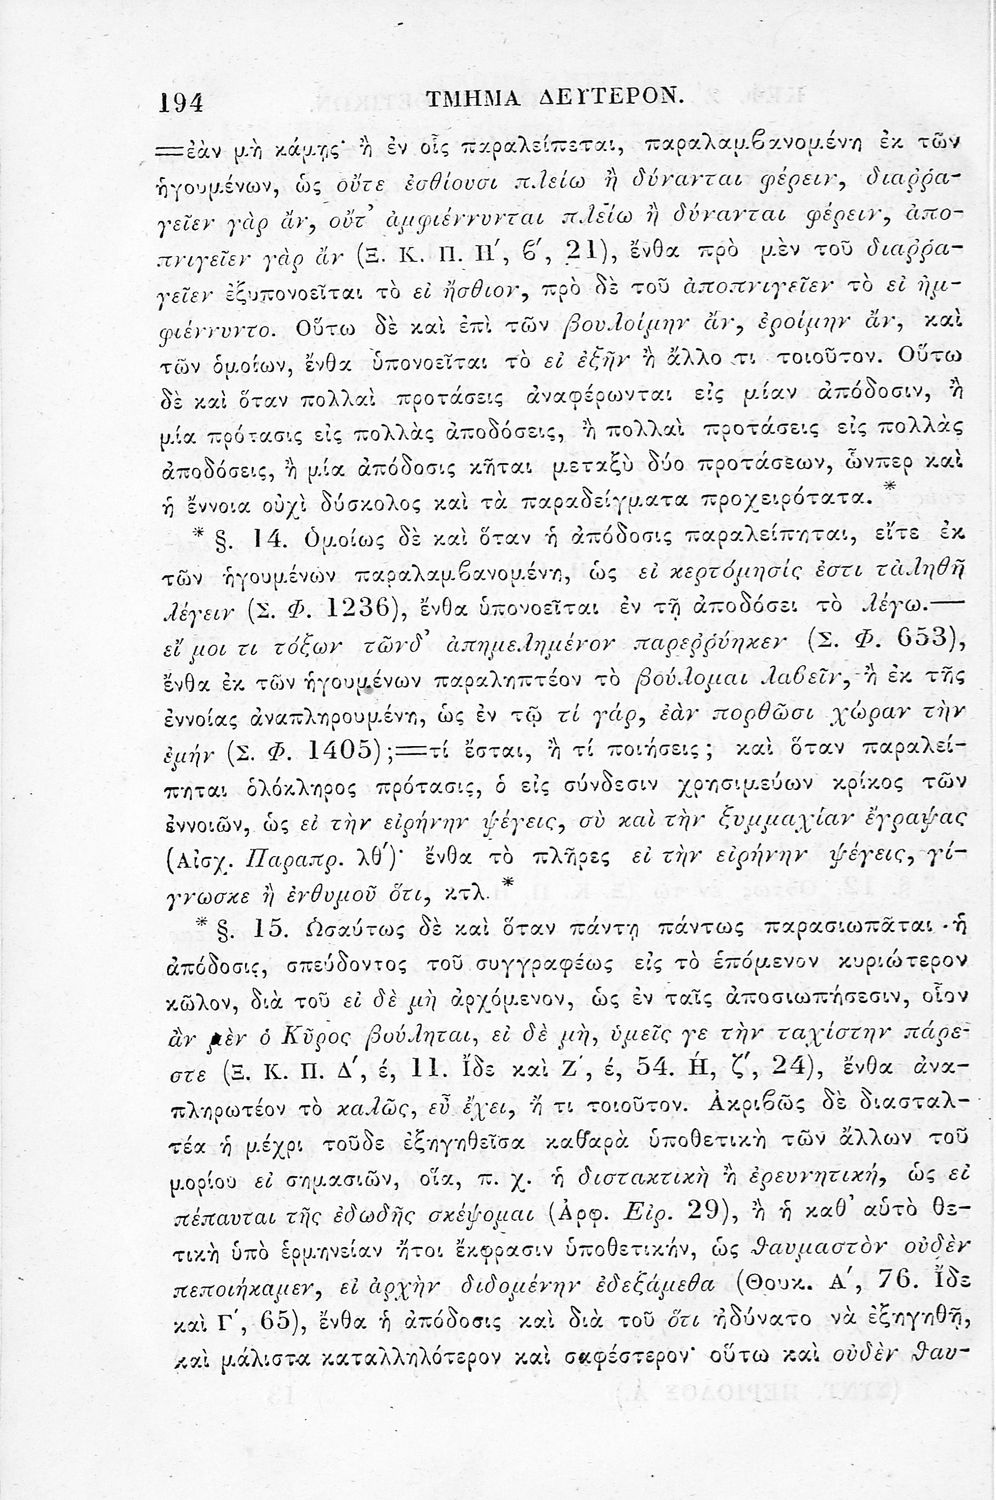 194 ΤΜΗΜΑ ΔΕΥΤΕΡΟΝ.
=ἐὰν μὴ κάμῃς· ἢ ἐν οἷς παραλείπεται, παραλαμβανομένη ἐκ τῶν
ἡγουμένων, ὡς οὔτε ἐσθίουσι πλείω ἢ δύνανται φέρειν, διαῤῥα-
γεῖεν γὰρ ἄν, οὔτ᾽ ἀμφιέννυνται πλείω ἢ δύνανται φέρειν, ἀπο-
πνιγεῖεν γὰρ ἄν (Ξ. Κ. Π. Η′, β′, 21), ἔνθα πρὸ μὲν τοῦ διαῤῥα-
γεῖεν ἐξυπονοεῖται τὸ εἰ ἤσθιον, πρὸ δὲ τοῦ ἀποπνιγεῖεν τὸ εἰ ἠμ-
φιέννυντο. Οὕτω δὲ καὶ ἐπὶ τῶν βουλοίμην ἄν, ἐροίμην ἄν, καὶ
τῶν ὁμοίων, ἔνθα ὑπονοεῖται τὸ εἰ ἐξῆν ἢ ἄλλο τι τοιοῦτον. Οὕτω
δὲ καὶ ὅταν πολλαὶ προτάσεις ἀναφέρωνται εἰς μίαν ἀπόδοσιν, ἢ
μία πρότασις εἰς πολλὰς ἀποδόσεις, ἢ πολλαὶ προτάσεις εἰς πολλὰς
ἀποδόσεις, ἢ μία ἀπόδοσις κῆται μεταξὺ δύο προτάσεων, ὧνπερ καὶ
ἡ ἔννοια οὐχὶ δύσκολος καὶ τὰ παραδείγματα προχειρότατα. *
* §. 14. Ὁμοίως δὲ καὶ ὅταν ἡ ἀπόδοσις παραλείπηται, εἴτε ἐκ
τῶν ἡγουμένων παραλαμβανομένη, ὡς εἰ κερτόμησίς ἐστι τἀληθῆ
λέγειν (Σ. Φ. 1236), ἔνθα ὑπονοεῖται ἐν τῇ ἀποδόσει τὸ λέγω.—
εἴ μοι τι τόξων τῶνδ᾽ ἀπημελημένον παρεῤῥύηκεν (Σ. Φ. 653),
ἔνθα ἐκ τῶν ἡγουμένων παραληπτέον τὸ βούλομαι λαβεῖν, ἢ ἐκ τῆς
ἐννοίας ἀναπληρουμένη, ὡς ἐν τῷ τί γάρ, ἐὰν πορθῶσι χώραν τὴν
ἐμήν (Σ. Φ. 1405);=τί ἔσται, ἢ τί ποιήσεις; καὶ ὅταν παραλεί-
πηται ὁλόκληρος πρότασις, ὁ εἰς σύνδεσιν χρησιμεύων κρίκος τῶν
ἐννοιῶν, ὡς εἰ τὴν εἰρήνην ψέγεις, σὺ καὶ τὴν ξυμμαχίαν ἔγραψας
(Αἰσχ. Παραπρ. λθ′)· ἔνθα τὸ πλῆρες εἰ τὴν εἰρήνην ψέγεις, γί-
γνωσκε ἢ ἐνθυμοῦ ὅτι, κτλ. *
* §. 15. Ὡσαύτως δὲ καὶ ὅταν πάντῃ πάντως παρασιωπᾶται ἡ
ἀπόδοσις, σπεύδοντος τοῦ συγγραφέως εἰς τὸ ἑπόμενον κυριώτερον
κῶλον, διὰ τοῦ εἰ δὲ μὴ ἀρχόμενον, ὡς ἐν ταῖς ἀποσιωπήσεσιν, οἷον
ἂν μὲν ὁ Κῦρος βούληται, εἰ δὲ μὴ, ὑμεῖς γε τὴν ταχίστην πάρε-
στε (Ξ. Κ. Π. Δ′, έ, 11. Ἴδε καὶ Ζ′, έ, 54. Ἡ, ζ′, 24), ἔνθα ἀνα-
πληρωτέον τὸ καλῶς, εὖ ἔχει, ἤ τι τοιοῦτον. Ἀκριβῶς δὲ διασταλ-
τέα ἡ μέχρι τοῦδε ἐξηγηθεῖσα καθαρὰ ὑποθετικὴ τῶν ἄλλων τοῦ
μορίου εἰ σημασιῶν, οἵα, π. χ. ἡ διστακτικὴ ἢ ἐρευνητική, ὡς εἰ
πέπαυται τῆς ἐδωδῆς σκέψομαι (Ἀρφ. Εἰρ. 29), ἢ ἡ καθ᾽ αὑτὸ θε-
τικὴ ὑπὸ ἑρμηνείαν ἤτοι ἔκφρασιν ὑποθετικήν, ὡς θαυμαστὸν οὐδὲν
πεποιήκαμεν, εἰ ἀρχὴν διδομένην ἐδεξάμεθα (Θουκ. Α′, 76. Ἴδε
καὶ Γ′, 65), ἔνθα ἡ ἀπόδοσις καὶ διὰ τοῦ ὅτι ἠδύνατο νὰ ἐξηγηθῇ,
καὶ μάλιστα καταλληλότερον καὶ σαφέστερον· οὕτω καὶ οὐδὲν θαυ-